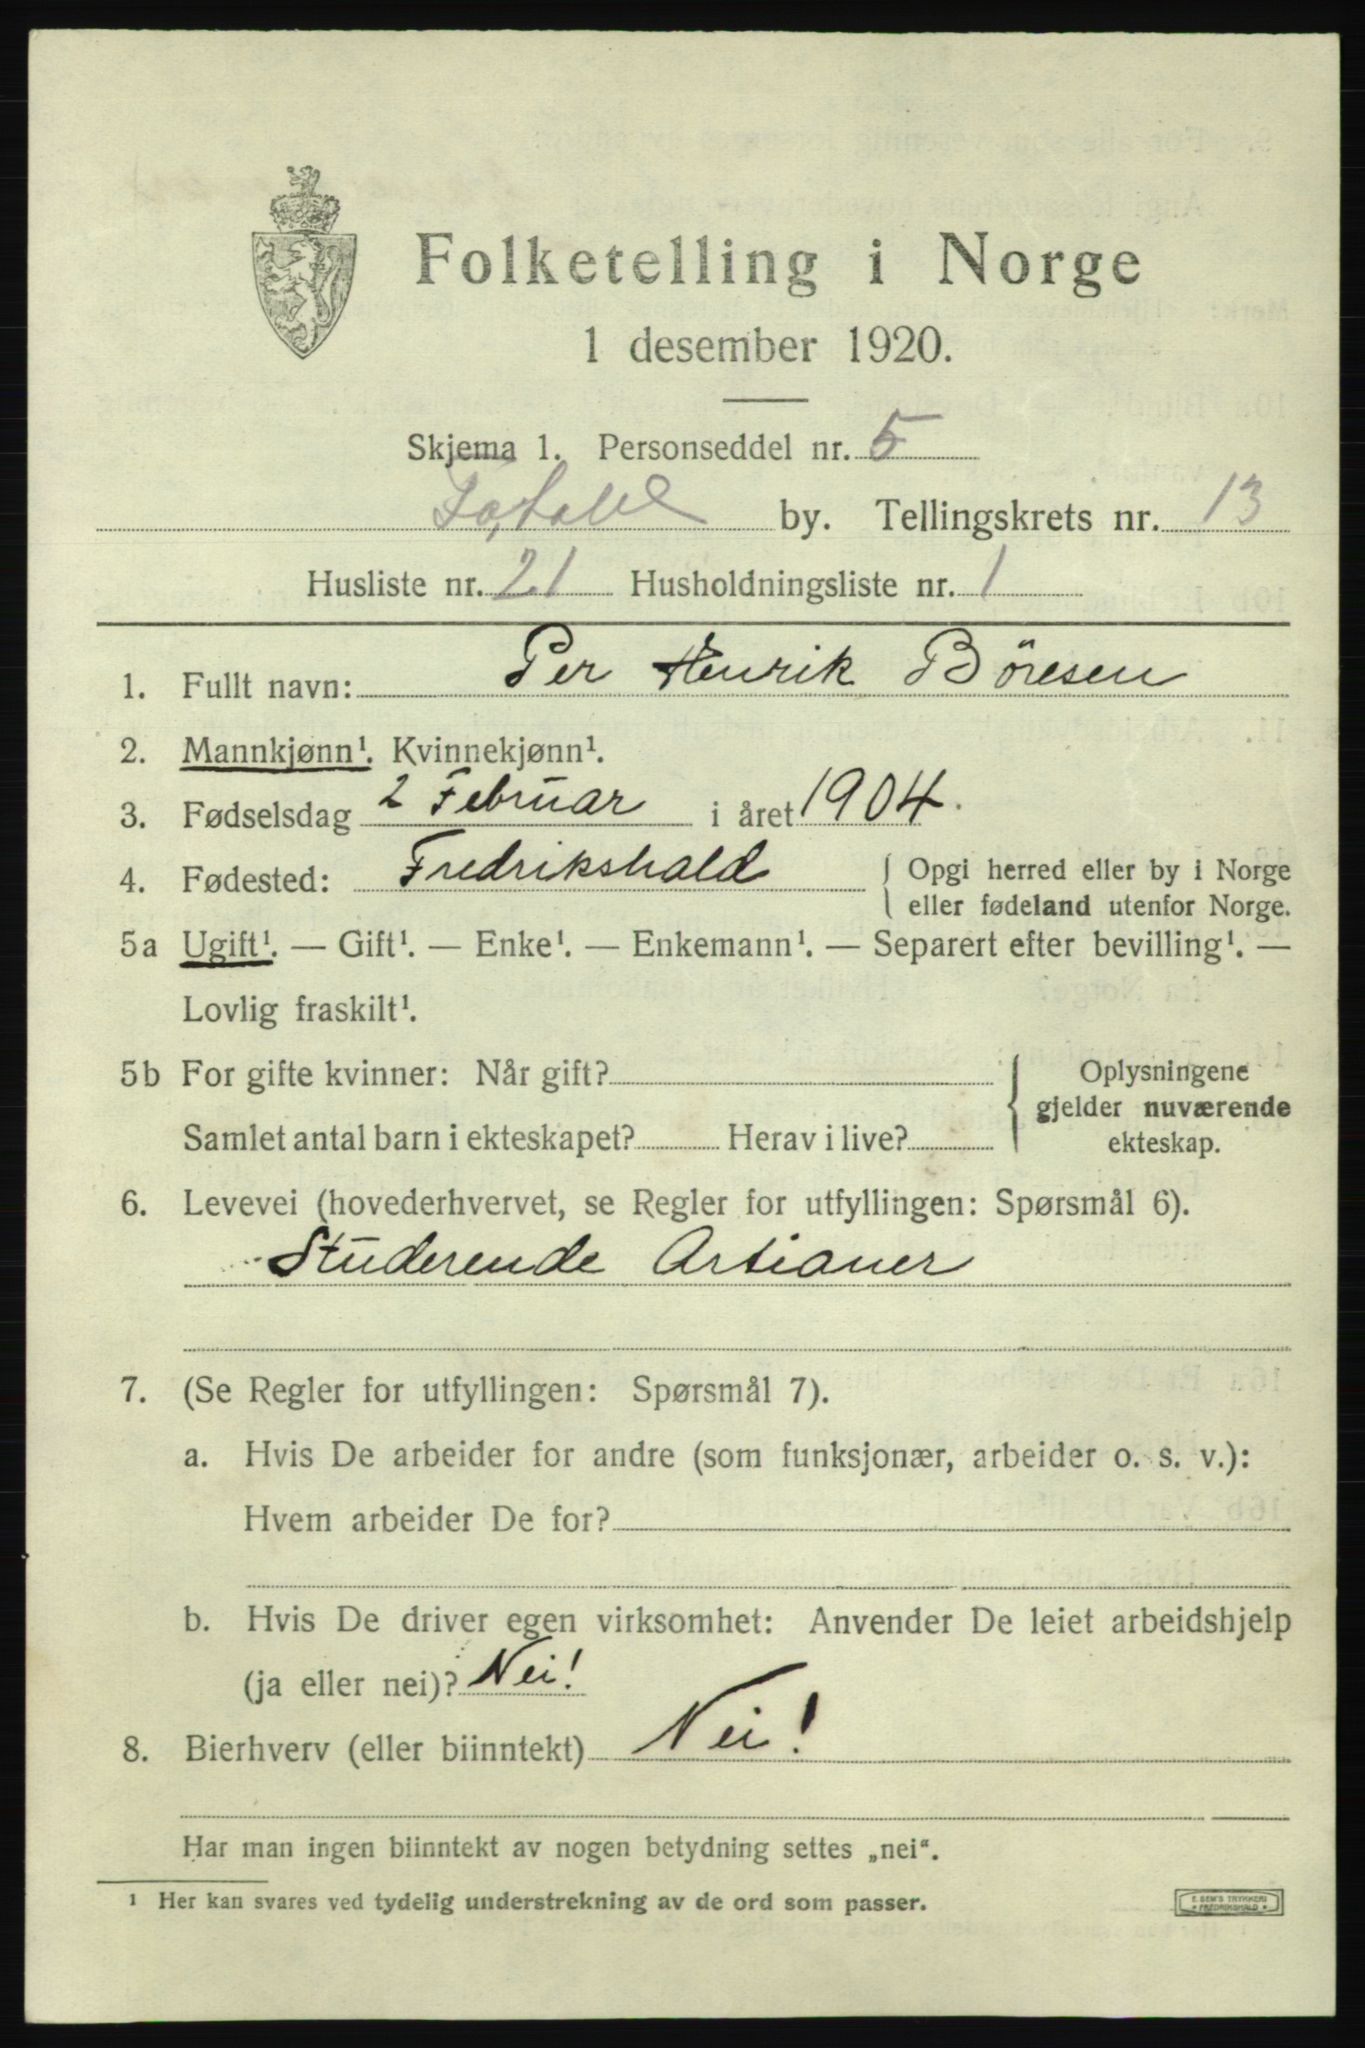 Folketelling i Norge
1 desember 1920.
Skjema 1. Personseddel nr. 5
by. Tellingskrets nr. 13
Husliste nr. 21 Husholdningsliste nr. 1
1. Fullt navn: Per Henrik Böresen
2. Mannkjønn¹. Kvinnekjønn¹.
3. Fødselsdag 2 Februar i året 1904.
4. Fødested: Fredrikshald { Opgi herred eller by i Norge
eller fødeland utenfor Norge.
5a Ugift¹. — Gift¹. — Enke¹. — Enkemann¹. — Separert efter bevilling¹. —
Lovlig fraskilt¹.
5b For gifte kvinner: Når gift?
Samlet antal barn i ekteskapet? Herav i live?
{ Oplysningene
gjelder nuværende
ekteskap.
6. Levevei (hovederhvervet, se Regler for utfyllingen: Spørsmål 6).
Studerende Artianer
7. (Se Regler for utfyllingen: Spørsmål 7).
a. Hvis De arbeider for andre (som funksjonær, arbeider o. s. v.):
Hvem arbeider De for?
b. Hvis De driver egen virksomhet: Anvender De leiet arbeidshjelp
(ja eller nei)? Nei!
8. Bierhverv (eller biinntekt) Nei!
Har man ingen biinntekt av nogen betydning settes „nei“.
¹ Her kan svares ved tydelig understrekning av de ord som passer.
E. SEM'S TRYKKERI
★ FREDRIKSHALD ★